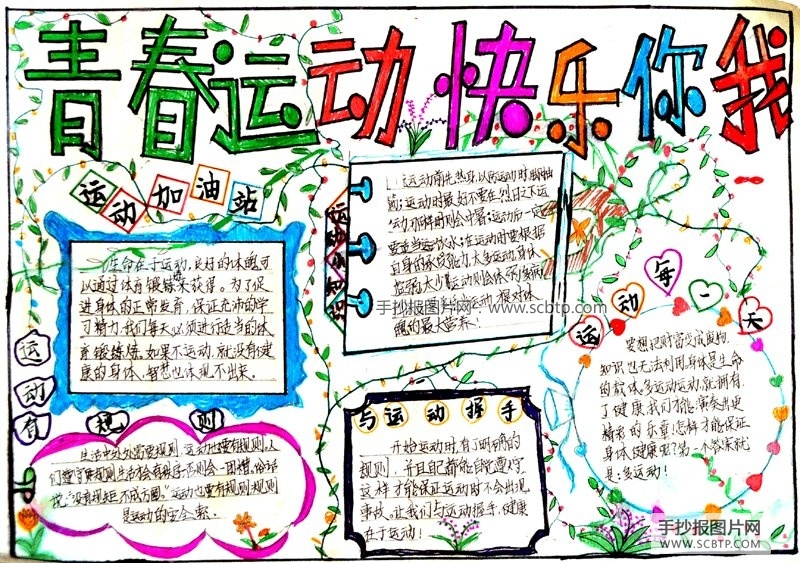 青春运动快乐你我
运动加油站
生命在于运动,良好的体魄可
以通过体育锻炼来获得。为了促
进身体的正常发育,保证充沛的学
习精力,我们每天必须进行适当的体
育锻炼,如果不运动,就没有健
康的身体,智慧也体现不出来。
运动前先热身,以防运动时脚抽
筋;运动时最好不要在烈日之下运
动,那样的则会中暑;运动后一定
要适当运饮水;在运动时要根据
自身的承受能力
手抄报图片网 www.scbtp.com
体的最大营养!
运动每一天
知识也无法利用,身体是生命
的载体,多运动运动,就拥有
了健康,我们才能演奏出更
精彩的乐章,怎样才能保证
身体健康呢?第一个答案就
是:多运动!
运动有规则
生活中处处需要规则,运动也要有规则,人
们遵守着规则生活
说,"没有规矩不成方圆。"运动也要有规则,规则
是运动的安全索。
与运动握手
开始运动时,有了明确的
规则,并且都能自觉遵守,
这样才能保证运动时不会出现
事故,让我们与运动握手,健康
在于运动!
手抄报图片网
WWW.SCBTP.COM